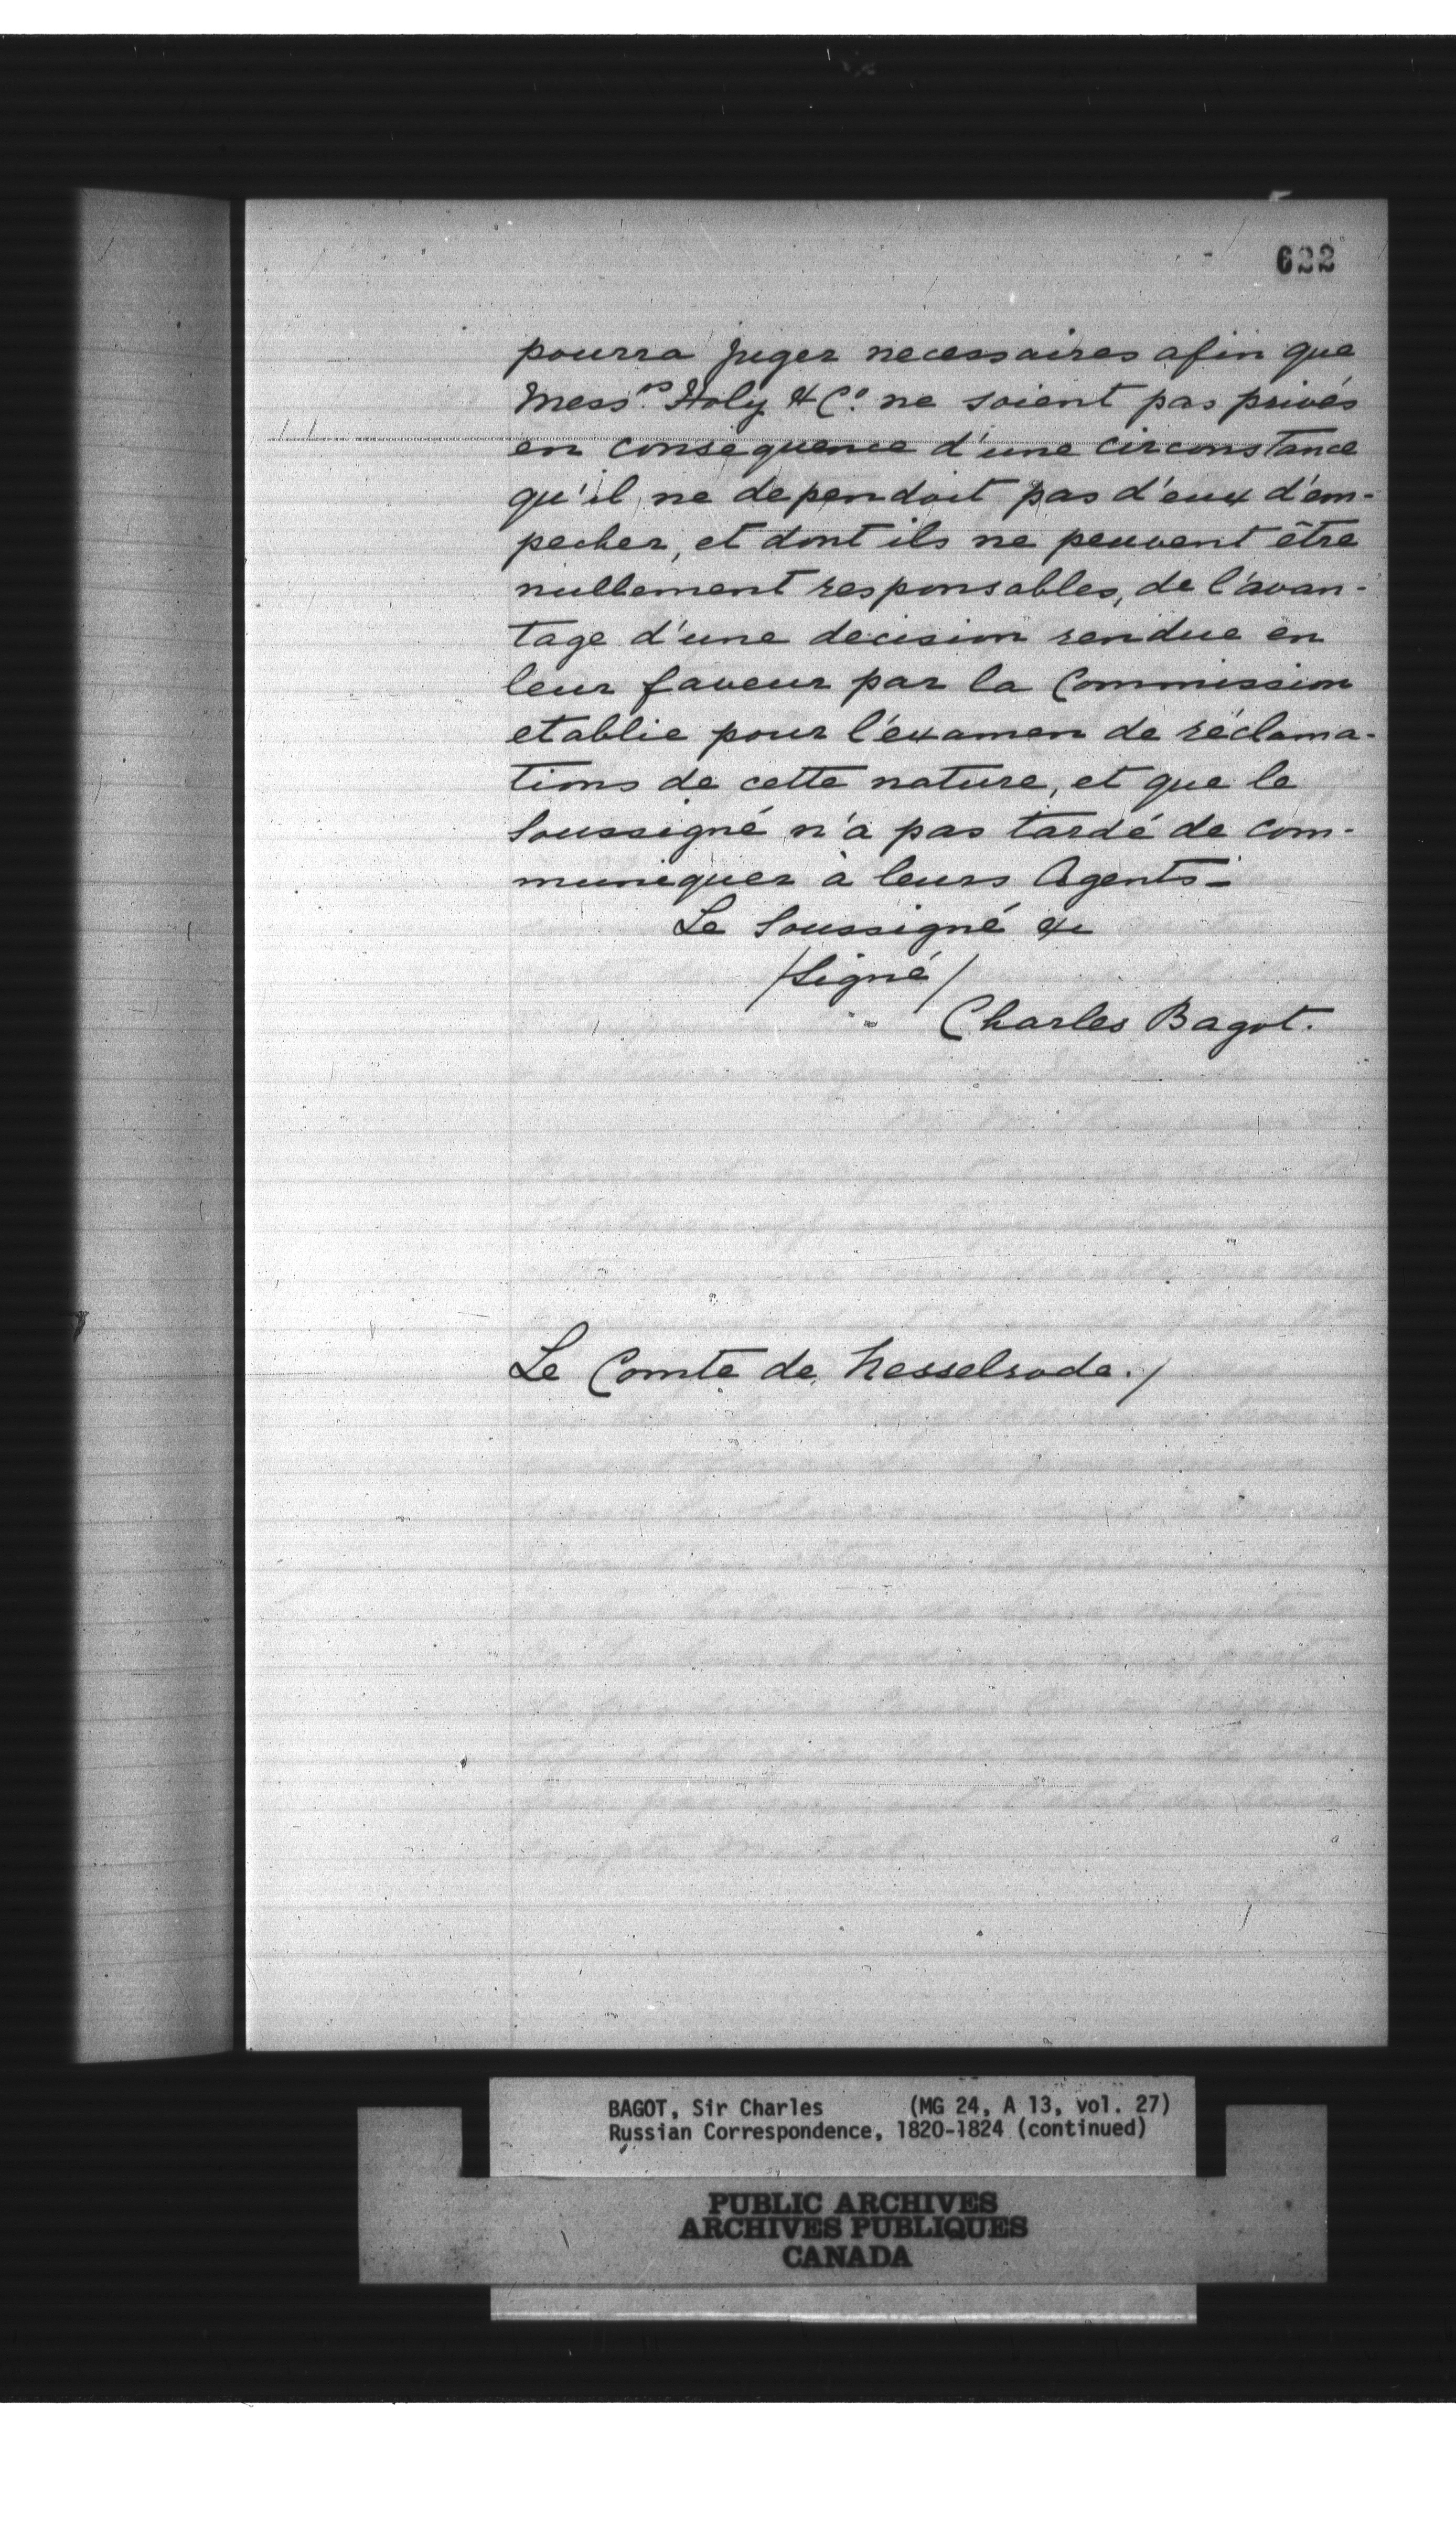 622
pourra juger necessaires afin que
Mess.rs Holy & Co. ne soient pas privés
en consequence d'une circonstance
qu'il ne dependoit pas d'eux d'em-
pecher, et dont ils ne peuvent être
nullement responsables, de l'avan-
tage d'une decision rendue en
leur faveur par la Commission
etablie pour l'examen de réclama-
tions de cette nature, et que le
Soussigné n'a pas tardé de com-
muniquer à leurs Agents –
Le Soussigné &c
/Signé/
Charles Bagot.
Le Comte de Nesselrode./
BAGOT, Sir Charles (MG 24, A 13, vol. 27)
Russian Correspondence, 1820-1824 (continued)
PUBLIC ARCHIVES
ARCHIVES PUBLIQUES
CANADA